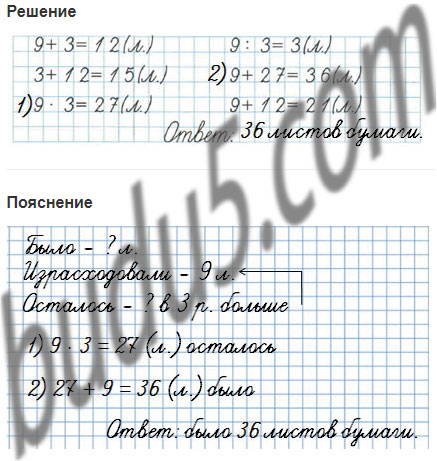 Решение
9+ 3= 1 2(л.) 9 : 3= 3(л.)
3+ 1 2= 1 5(л.) 2) 9+ 27= 36(л.)
1) 9 · 3= 27(л.) 9+ 1 2= 21(л.)
Ответ: 36 листов бумаги.
Пояснение
Было – ? л.
Израсходовали – 9 л.
Осталось – ? в 3 р. больше
1) 9 · 3 = 27 (л.) осталось
2) 27 + 9 = 36 (л.) было
Ответ: было 36 листов бумаги.
budu5.com